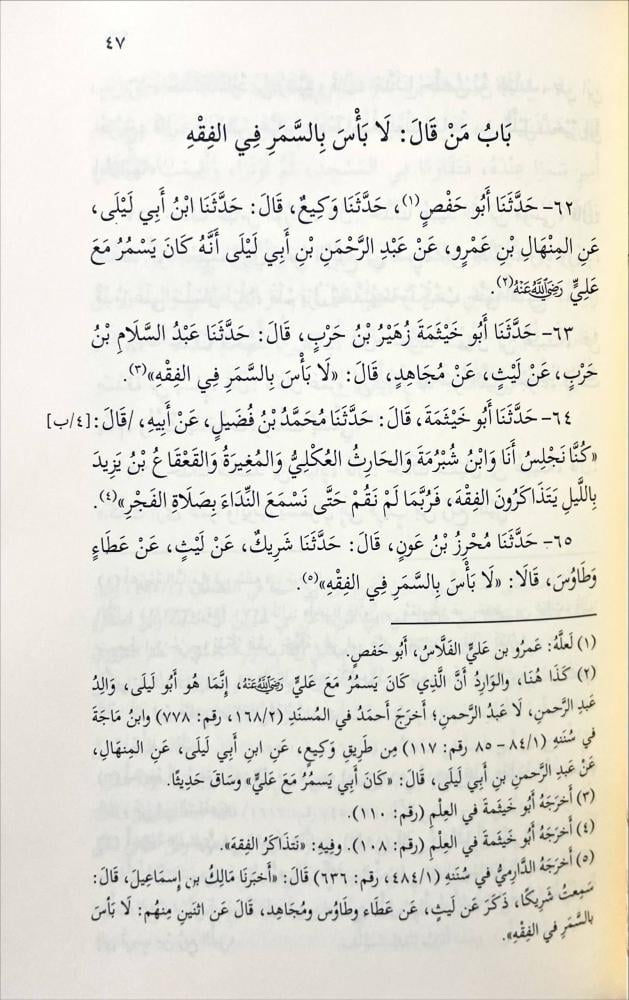 ٤٧
بَابُ مَنْ قَالَ: لَا بَأْسَ بِالسَّمَرِ فِي الفِقْهِ
٦٢- حَدَّثَنَا أَبُو حَفْصٍ(١)، حَدَّثَنَا وَكِيعٌ، قَالَ: حَدَّثَنَا ابْنُ أَبِي لَيْلَى،
عَنِ المِنْهَالِ بْنِ عَمْرٍو، عَنْ عَبْدِ الرَّحْمَنِ بْنِ أَبِي لَيْلَى أَنَّهُ كَانَ يَسْمُرُ مَعَ
عَلِيٍّ رَضِيَ اللَّهُ عَنْهُ(٢).
٦٣- حَدَّثَنَا أَبُو خَيْثَمَةَ زُهَيْرُ بْنُ حَرْبٍ، قَالَ: حَدَّثَنَا عَبْدُ السَّلَامِ بْنُ
حَرْبٍ، عَنْ لَيْثٍ، عَنْ مُجَاهِدٍ، قَالَ: «لَا بَأْسَ بِالسَّمَرِ فِي الفِقْهِ»(٣).
٦٤- حَدَّثَنَا أَبُو خَيْثَمَةَ، قَالَ: حَدَّثَنَا مُحَمَّدُ بْنُ فُضَيْلٍ، عَنْ أَبِيهِ، /قَالَ: [٤/ب]
«كُنَّا نَجْلِسُ أَنَا وَابْنُ شُبْرُمَةَ وَالحَارِثُ العُكْلِيُّ وَالمُغِيرَةُ وَالقَعْقَاعُ بْنُ يَزِيدَ
بِاللَّيْلِ يَتَذَاكَرُونَ الفِقْهَ، فَرُبَّمَا لَمْ نَقُمْ حَتَّى نَسْمَعَ النِّدَاءَ بِصَلَاةِ الفَجْرِ»(٤).
٦٥- حَدَّثَنَا مُحْرِزُ بْنُ عَونٍ، قَالَ: حَدَّثَنَا شَرِيكٌ، عَنْ لَيْثٍ، عَنْ عَطَاءٍ
وَطَاوُسَ، قَالَا: «لَا بَأْسَ بِالسَّمَرِ فِي الفِقْهِ»(٥).
(١) لَعَلَّهُ: عَمرُو بن عَلِيٍّ الفَلَّاسُ، أَبُو حَفصٍ.
(٢) كَذَا هُنَا، والوَارِدُ أَنَّ الَّذِي كَانَ يَسمُرُ مَعَ عَلِيٍّ رَضِيَ اللَّهُ عَنْهُ، إِنَّمَا هُو أَبُو لَيلَى، وَالِدُ
عَبدِ الرَّحمنِ، لَا عَبدُ الرَّحمنِ؛ أَخرَجَ أَحمَدُ في المُسنَدِ (١٦٨/٢، رقم: ٧٧٨) وابنُ مَاجَةَ
في سُنَنهِ (٨٤/١ - ٨٥ رقم: ١١٧) مِن طَرِيقِ وَكِيعٍ، عَنِ ابنِ أَبِي لَيلَى، عَنِ المِنهَالِ،
عَنْ عَبدِ الرَّحمنِ بنِ أَبِي لَيلَى، قَالَ: «كَانَ أَبِي يَسمُرُ مَعَ عَلِيٍّ» وَسَاقَ حَدِيثًا.
(٣) أَخرَجَهُ أَبُو خَيثَمةَ في العِلْمِ (رقم: ١١٠).
(٤) أَخرَجَهُ أَبُو خَيثَمةَ في العِلْمِ (رقم: ١٠٨). وفِيهِ: «نَتَذَاكَرُ الفِقهَ».
(٥) أَخرَجَهُ الدَّارِمِيُّ في سُنَنهِ (٤٨٤/١، رقم: ٦٣٦) قَالَ: «أَخبَرَنَا مَالِكُ بن إِسمَاعِيلَ، قَالَ:
سَمِعتُ شَرِيكًا، ذَكَرَ عَن لَيثٍ، عَن عَطَاءٍ وطَاوُسٍ ومُجَاهِدٍ، قَالَ عَن اثنَينِ مِنهُم: لَا بَأسَ
بالسَّمَرِ في الفِقْهِ».